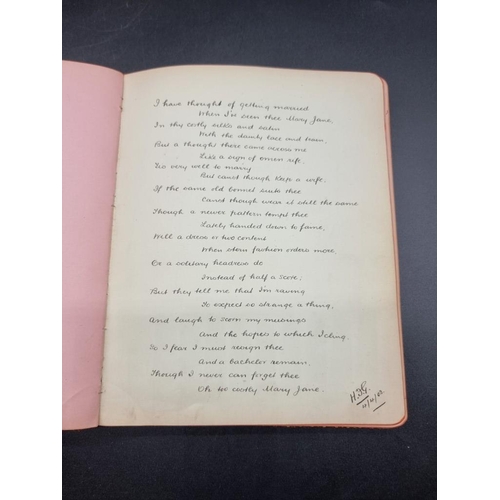 I have thought of getting married
When I've seen thee Mary Jane,
In thy costly silks and satin
With the dainty lace and train,
But a thought there came across me
Like a sign of omen rife,
Tis very well to marry
But canst though keep a wife.
If the same old bonnet suits thee
Canst though wear it still the same
Though a newer pattern tempt thee
Lately handed down to fame,
Will a dress or two content
When stern fashion orders more,
Or a solitary headress do
Instead of half a score;
But they tell me that I'm raving
To expect so strange a thing,
And laugh to scorn my musings
And the hopes to which I cling.
So I fear I must resign thee
And a bachelor remain.
Though I never can forget thee
Oh the costly Mary Jane.
4/4/02